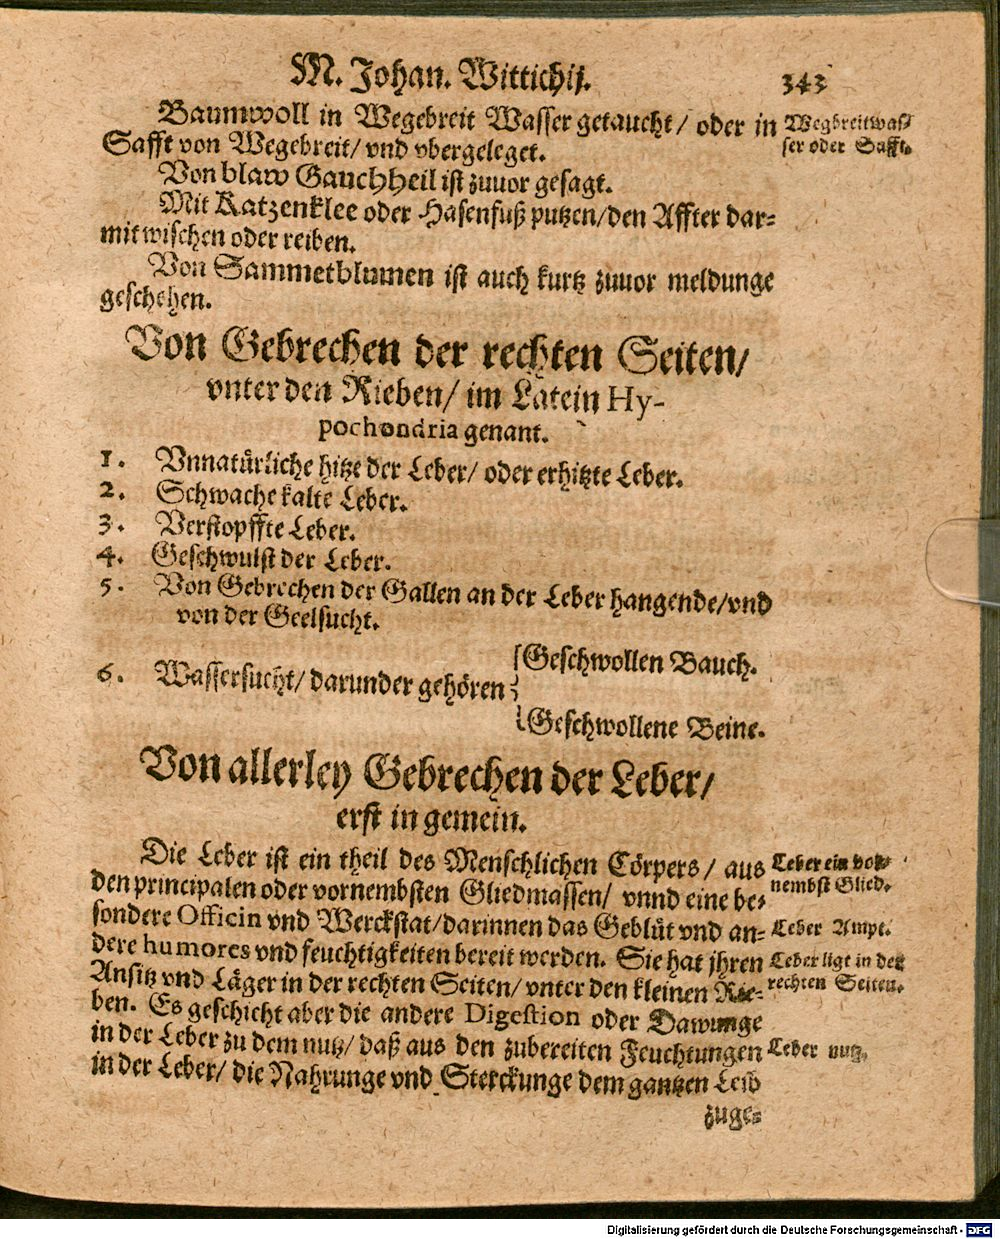 M. Johan. Wittichij. 343
Baumwoll in Wegebreit Wasser getaucht / oder in
Wegbreitwas-
Safft von Wegebreit / vnd vbergeleget.
ser oder Safft.
Von blaw Gauchheil ist zuuor gesagt.
Mit Katzenklee oder Hasenfuß putzen / den Affter dar=
mit wischen oder reiben.
Von Sammetblumen ist auch kurtz zuuor meldunge
geschehen.
Von Gebrechen der rechten Seiten /
vnter den Rieben / im Latein Hy-
pochondria genant.
1. Vnnatürliche hitze der Leber / oder erhitzte Leber.
2. Schwache kalte Leber.
3. Verstopffte Leber.
4. Geschwulst der Leber.
5. Von Gebrechen der Gallen an der Leber hangende / vnd
von der Geelsucht.
Geschwollen Bauch.
6. Wassersucht / darunder gehören
Geschwollene Beine.
Von allerley Gebrechen der Leber /
erst in gemein.
Die Leber ist ein theil des Menschlichen Cörpers / aus
Leber ein vor-
den principalen oder vornembsten Gliedmassen / vnnd eine be=
nembst Glied.
sondere Officin vnd Werckstat / darinnen das Geblüt vnd an=
Leber Ampt.
dere humores vnd feuchtigkeiten bereit werden. Sie hat jhren
Leber ligt in der
Ansitz vnd Läger in der rechten Seiten / vnter den kleinen Rie=
rechten Seiten.
ben. Es geschicht aber die andere Digestion oder Dawunge
in der Leber zu dem nutz / daß aus den zubereiten Feuchtungen
Leber nutz.
in der Leber / die Nahrunge vnd Sterckunge dem gantzen Leib
zuge=
Digitalisierung gefördert durch die Deutsche Forschungsgemeinschaft - DFG